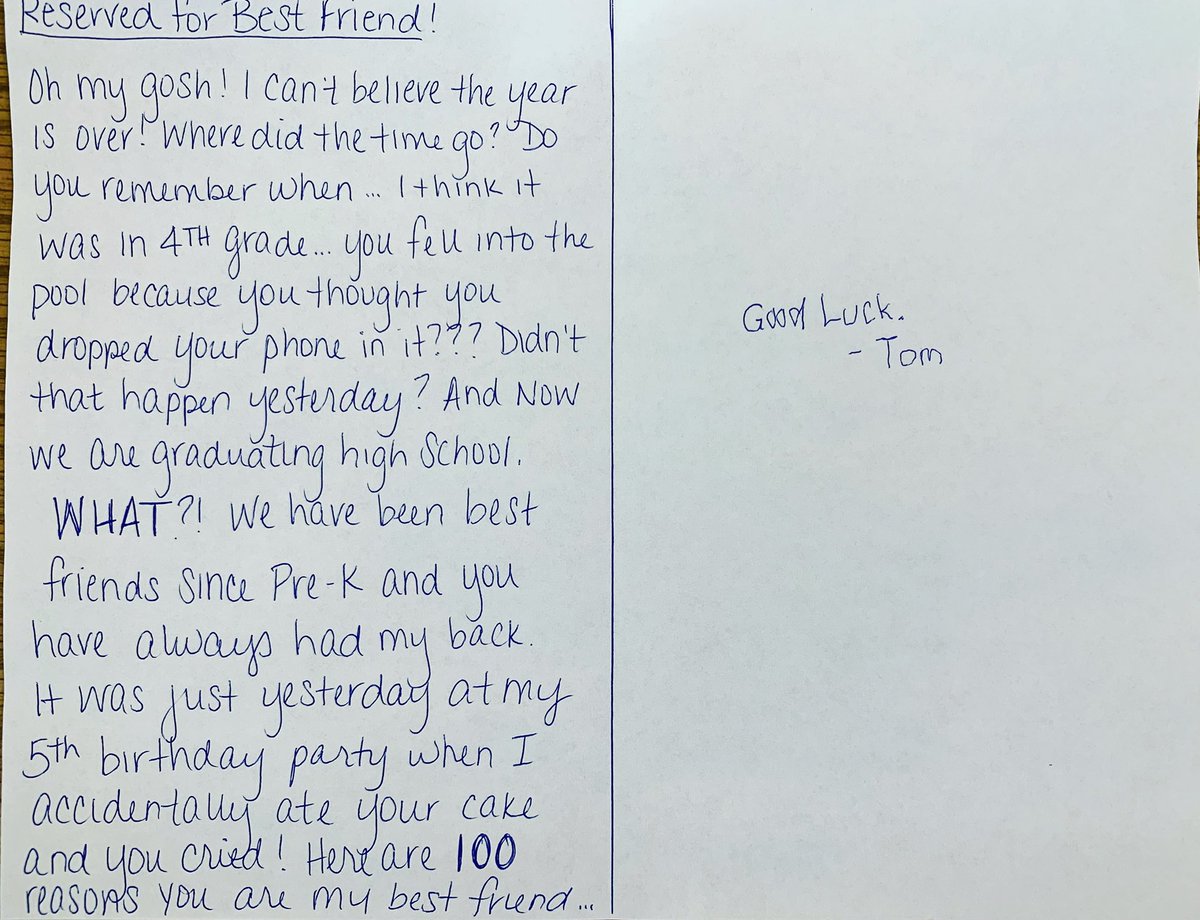 Reserved for Best Friend!
Oh my gosh! I can't believe the year
is over! Where did the time go? Do
you remember when... I think it
was in 4TH grade... you fell into the
pool because you thought you
dropped your phone in it??? Didn't
that happen yesterday? And Now
we are graduating high School.
WHAT?! We have been best
friends since Pre-K and you
have always had my back.
It was just yesterday at my
5th birthday party when I
accidentally ate your cake
and you cried! Here are 100
reasons you are my best friend...
Good Luck.
- Tom